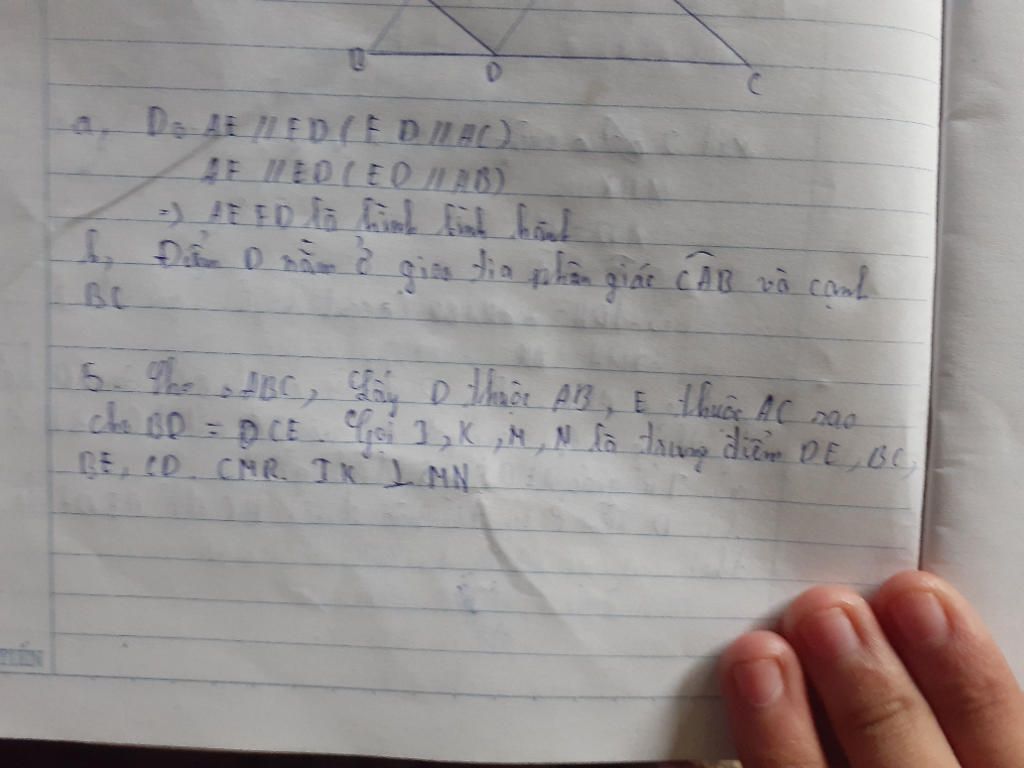 B D C
a, Do AE // FD ( FD // AC)
AF // ED ( ED // AB)
=> AEFD là hình bình hành
b, Điểm D nằm ở giao tia phân giác CAB và cạnh
BC
5. Cho △ABC, lấy D thuộc AB, E thuộc AC sao
cho BD = DCE. Gọi I, K, M, N là trung điểm DE, BC,
BE, CD. CMR IK ⊥ MN.